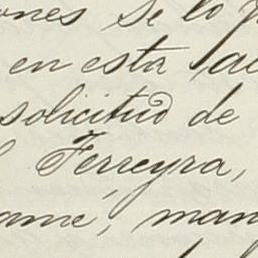 ones se lo
en esta
solicitud de
Ferreyra,
ame, man